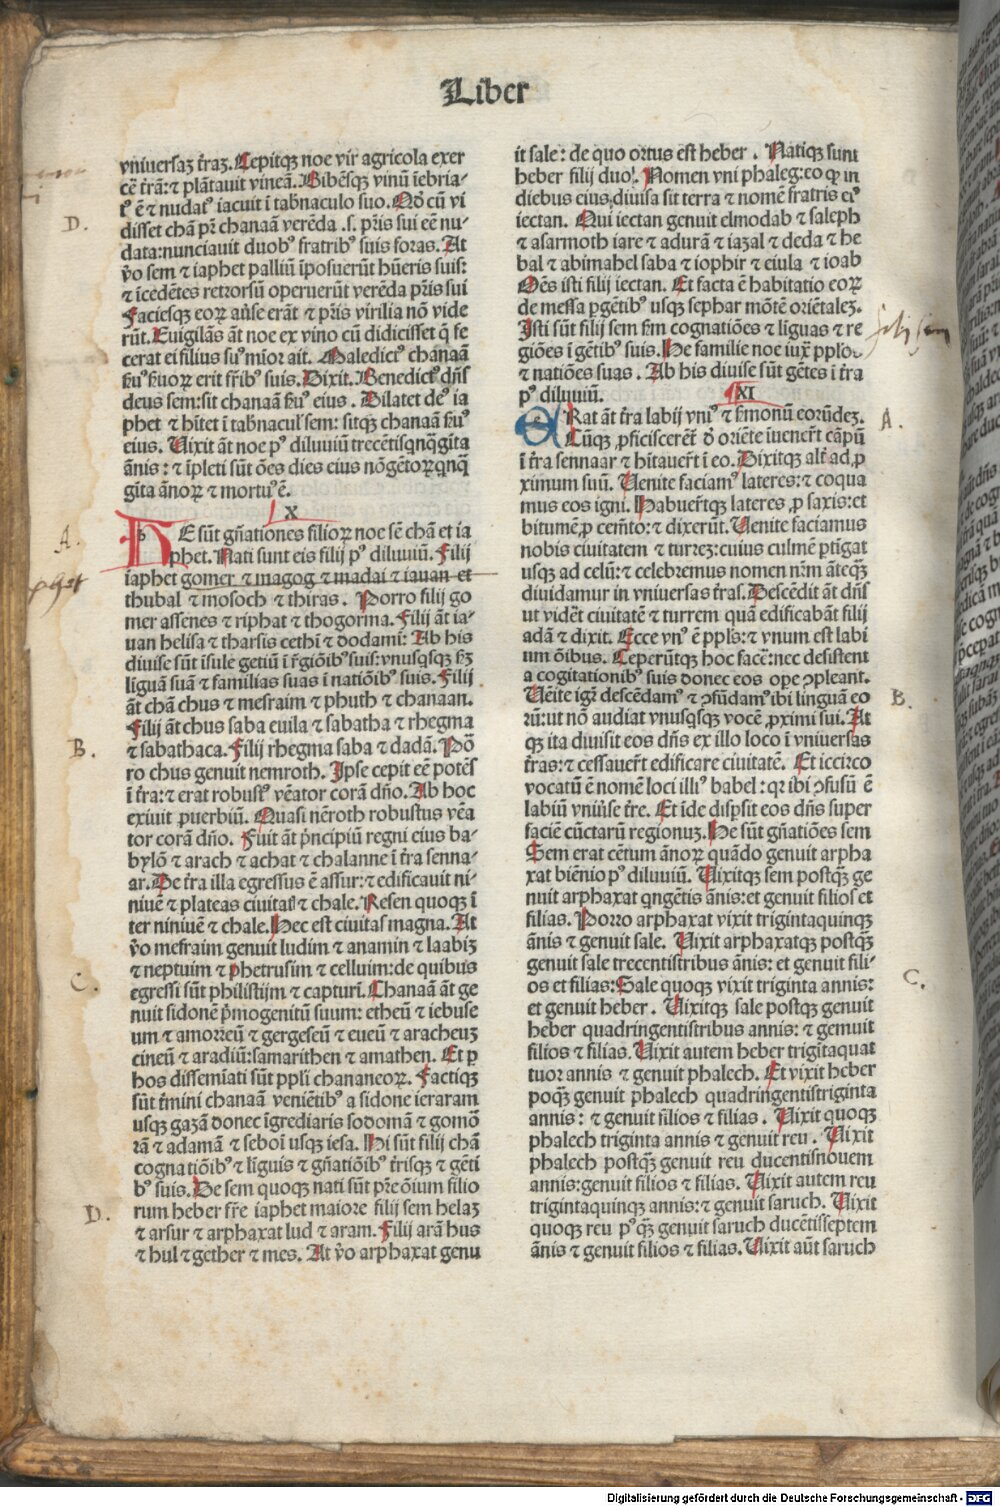 Liber
vniuersaꝫ t̄raꝫ. Cepitqꝫ noe vir agricola exer
cē t̄rā: ⁊ plātauit vineā. Bibēsqꝫ vinū īebria⸗
tꝰ ē ⁊ nudatꝰ iacuit ī tabnaculo suo. Qḋ cū vi
disset chā pr̄ chanaā verēda .s. pr̄is sui eē nu⸗
data: nunciauit duobꝰ fratribꝰ suis foras. At
v̄o sem ⁊ iaphet palliū īposuerūt hūeris suis:
⁊ īcedētes retrorsū operuerūt verēda pr̄is sui
Faciesqꝫ eoꝝ au̓se erāt ⁊ pr̄is virilia nō vide
rūt. Euigilās āt noe ex vino cū didicisset q̄ fe
cerat ei filius suꝰ mīor ait. Maledictꝰ chanaā
ẜuꝰ ẜuoꝝ erit fr̄ibꝰ suis. Dixit. Benedictꝰ dn̄s
deus sem: sit chanaā ẜuꝰ eius. Dilatet deꝰ ia
phet ⁊ hītet ī tabnacul̓ sem: sitqꝫ chanaā ẜuꝰ
eius. Uixit āt noe pꝰ diluuiū trecētisqnq̄gīta
ānis: ⁊ īpleti sūt oēs dies eius nōgētoꝝqnq̄
gīta ānoꝝ ⁊ mortuꝰ ē.
X
HE sūt gn̄ationes filioꝝ noe sē chā et ia
phet. Nati sunt eis filij pꝰ diluuiū. Filij
iaphet gomer ⁊ magog ⁊ madai ⁊ iauan et
thubal ⁊ mosoch ⁊ thiras. Porro filij go
mer assenes ⁊ riphat ⁊ thogorma. Filij āt ia⸗
uan helisa ⁊ tharsis cethī ⁊ dodami: Ab his
diuise sūt īsule getiū ī r̄giōibꝰ suis: vnusqsqꝫ ẜꝫ
līguā suā ⁊ familias suas ī natiōibꝰ suis. Filij
āt chā chus ⁊ mesraim ⁊ phuth ⁊ chanaan.
Filij āt chus saba euila ⁊ sabatha ⁊ rhegma
⁊ sabathaca. Filij rhegma saba ⁊ dadā. Poꝛ̄
ro chus genuit nemroth. Ipse cepit eē potēs
ī t̄ra: ⁊ erat robustꝰ vēator corā dn̄o. Ab hoc
exiuit ꝓuerbiū. Quasi nēroth robustus vēa
tor corā dn̄o. Fuit āt p̄ncipiū regni eius ba⸗
bylō ⁊ arach ⁊ achat ⁊ chalanne ī t̄ra senna⸗
ar. De t̄ra illa egressus ē assur: ⁊ edificauit ni⸗
niuē ⁊ plateas ciuitat̄ ⁊ chale. Resen quoqꝫ ī
ter niniuē ⁊ chale. Hec est ciuitas magna. At
v̄o mesraim genuit ludim ⁊ anamin ⁊ laabiꝫ
⁊ neptuim ⁊ phetrusim ⁊ celluim: de quibus
egressi sūt philistijm ⁊ capturī. Chanaā āt ge
nuit sidonē p̄mogenitū suum: etheū ⁊ iebuse
um ⁊ amorreū ⁊ gergeseū ⁊ eueū ⁊ aracheuꝫ
cineū ⁊ aradiū: samarithen ⁊ amathen. Et p
hos dissemīati sūt ppl̄i chananeoꝝ. Factiqꝫ
sūt t̄mini chanaā veniētibꝰ a sidone ieraram
usqꝫ gazā donec īgrediaris sodomā ⁊ gomō
rā ⁊ adamā ⁊ seboī usqꝫ iesa. Hi sūt filij chā
cognatiōibꝰ ⁊ līguis ⁊ gn̄atiōibꝰ t̄risqꝫ ⁊ gēti
bꝰ suis. De sem quoqꝫ nati sūt pr̄e oīum filio
rum heber fr̄e iaphet maiore filij sem helaꝫ
⁊ arsur ⁊ arphaxat lud ⁊ aram. Filij arā hus
⁊ hul ⁊ gether ⁊ mes. At v̄o arphaxat genu
it sale: de quo ortus est heber. Natiqꝫ sunt
heber filij duo. Nomen vni phaleg: eo ꝙ in
diebus eius diuisa sit terra ⁊ nomē fratris eiꝰ
iectan. Qui iectan genuit elmodab ⁊ saleph
⁊ asarmoth iare ⁊ adurā ⁊ iazal ⁊ deda ⁊ he
bal ⁊ abimahel saba ⁊ iophir ⁊ eiula ⁊ ioab
Oēs isti filij iectan. Et facta ē habitatio eoꝝ
de messa pgētibꝰ usqꝫ sephar mōtē oriētaleꝫ.
Isti sūt filij sem ẜm cognatiōes ⁊ līguas ⁊ re
giōes ī gētibꝰ suis. He familie noe iuxͣ pplos
⁊ natiōes suas. Ab his diuise sūt gētes ī t̄ra
pꝰ diluuiū.
XI
ERat āt t̄ra labij vniꝰ ⁊ ẜmonū eorūdeꝫ.
Cūqꝫ ꝓficiscerēt̓ ḋ oriēte īuener̄t cāpū
ī t̄ra sennaar ⁊ hītauer̄t ī eo. Dixitqꝫ alt̓ ad ꝓ
ximum suū. Uenite faciamꝰ lateres: ⁊ coqua
mus eos igni. Habuer̄tqꝫ lateres ꝓ saxis: et
bitumē ꝓ cemēto: ⁊ dixerūt. Uenite faciamus
nobis ciuitatem ⁊ turreꝫ: cuius culmē ptīgat
usqꝫ ad celū: ⁊ celebremus nomen nr̄m āteqꝫ
diuidamur in vniuersas t̄ras. Descēdit āt dn̄s
ut vidēt ciuitatē ⁊ turrem quā edificabāt filij
adā ⁊ dixit. Ecce vnꝰ ē ppl̓s: ⁊ vnum est labi
um oībus. Ceperūtqꝫ hoc facē: nec desistent
a cogitationibꝰ suis donec eos ope ꝯpleant.
Uēite igi descēdamꝰ ⁊ ꝯfūdamꝰ ibi linguā eo
rū: ut nō audiat vnusqsqꝫ vocē ꝓximi sui. At
qꝫ ita diuisit eos dn̄s ex illo loco ī vniuersas
t̄ras: ⁊ cessauer̄t edificare ciuitatē. Et iccirco
vocatū ē nomē loci illiꝰ babel: qꝛ ibi ꝯfusū ē
labiū vniu̓se t̄re. Et īde disp̄sit eos dn̄s super
faciē cūctarū regionuꝫ. He sūt gn̄atiōes sem
Sem erat cētum ānoꝝ quādo genuit arpha
xat biēnio pꝰ diluuiū. Uixitqꝫ sem postqꝫ ge
nuit arphaxat qngētis ānis: et genuit filios et
filias. Porro arphaxat vixit trigintaquinqꝫ
ānis ⁊ genuit sale. Uixit arphaxatqꝫ postqꝫ
genuit sale trecentistribus ānis: et genuit fili⸗
os et filias: Sale quoqꝫ vixit triginta annis:
et genuit heber. Uixitqꝫ sale postqꝫ genuit
heber quadringentistribus annis: ⁊ genuit
filios ⁊ filias. Uixit autem heber trīgitaquat
tuor annis ⁊ genuit phalech. Et vixit heber
poqꝫ genuit phalech quadringentistriginta
annis: ⁊ genuit filios ⁊ filias. Uixit quoqꝫ
phalech triginta annis ⁊ genuit reu. Uixit
phalech postqꝫ genuit reu ducentisnouem
annis: genuit filios ⁊ filias. Uixit autem reu
trigintaquinqꝫ annis: ⁊ genuit saruch. Uixit
quoqꝫ reu pꝰqꝫ genuit saruch ducētisseptem
ānis ⁊ genuit filios ⁊ filias. Uixit aūt saruch
D.
A.
B.
C.
D.
A.
B.
C.
Digitalisierung gefördert durch die Deutsche Forschungsgemeinschaft - DFG